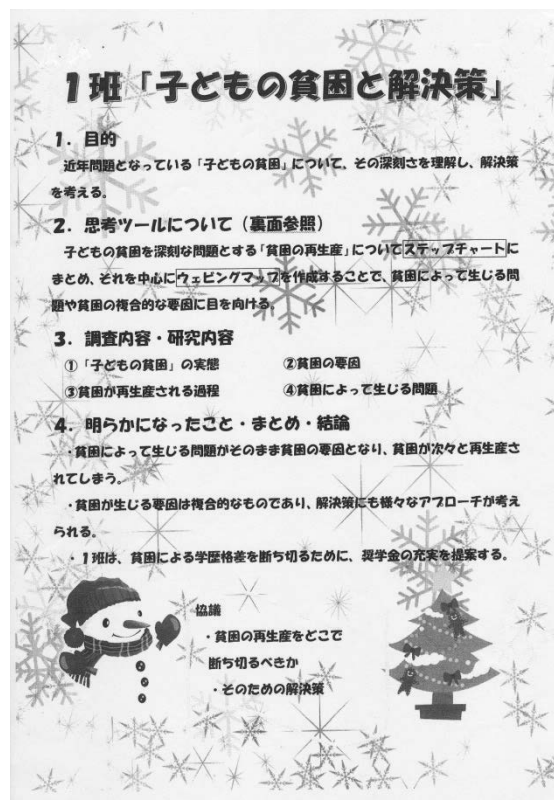 1班「子どもの貧困と解決策」
1．目的
近年問題となっている「子どもの貧困」について、その深刻さを理解し、解決策
を考える。
2．思考ツールについて（裏面参照）
子どもの貧困を深刻な問題とする「貧困の再生産」についてステップチャートに
まとめ、それを中心にウェビングマップを作成することで、貧困によって生じる問
題や貧困の複合的な要因に目を向ける。
3．調査内容・研究内容
①「子どもの貧困」の実態　②貧困の要因
③貧困が再生産される過程　④貧困によって生じる問題
4．明らかになったこと・まとめ・結論
・貧困によって生じる問題がそのまま貧困の要因となり、貧困が次々と再生産さ
れてしまう。
・貧困が生じる要因は複合的なものであり、解決策にも様々なアプローチが考え
られる。
・1班は、貧困による学歴格差を断ち切るために、奨学金の充実を提案する。
協議
・貧困の再生産をどこで
断ち切るべきか
・そのための解決策